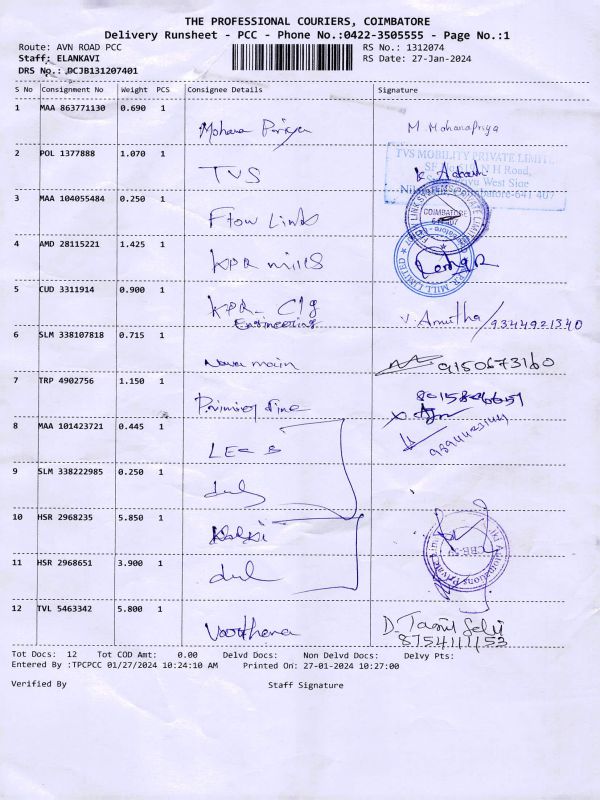 THE PROFESSIONAL COURIERS, COIMBATORE
Delivery Runsheet - PCC - Phone No.:0422-3505555 - Page No.:1
Route: AVN ROAD PCC RS No.: 1312074
Staff: ELANKAVI RS Date: 27-Jan-2024
DRS No.: DCJB131207401
S No Consignment No Weight PCS Consignee Details Signature
1 MAA 863771130 0.690 1 Mohana Priya M. Mohanapriya
2 POL 1377888 1.070 1 TVS
TVS MOBILITY PRIVATE LIMITE
3 MAA 104055484 0.250 1 Flow Links
COIMBATORE
4 AMD 28115221 1.425 1 KPR mills
5 CUD 3311914 0.900 1 KPR - Clg V. Amutha / 9344921340
Engineering
6 SLM 338107818 0.715 1 9150673160
7 TRP 4902756 1.150 1
8 MAA 101423721 0.445 1
9 SLM 338222985 0.250 1
10 HSR 2968235 5.850 1
11 HSR 2968651 3.900 1
12 TVL 5463342 5.800 1 D. Tamil Selvi
Tot Docs: 12 Tot COD Amt: 0.00 Delvd Docs: Non Delvd Docs: Delvy Pts:
Entered By :TPCPCC 01/27/2024 10:24:10 AM Printed On: 27-01-2024 10:27:00
Verified By Staff Signature